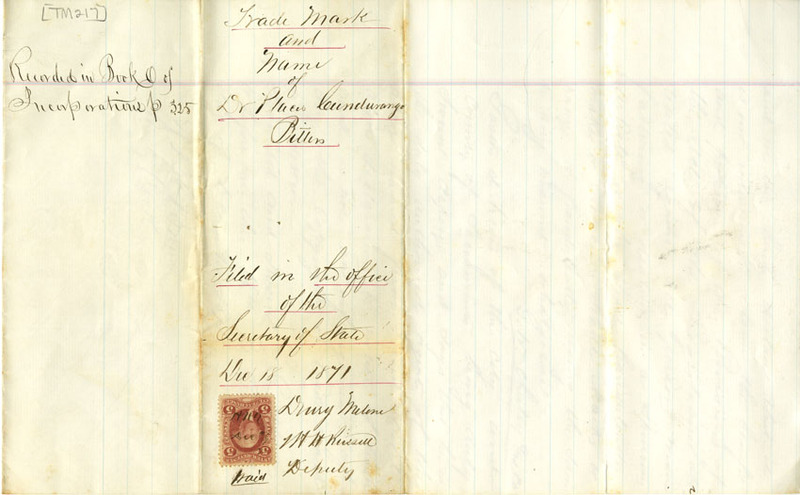 [TM217]
Recorded in Book O of
Incorporations p 325
Trade Mark
and
Name
of
Dr Places Cundurango
Bitters
Filed in the office
of the
Secretary of State
Dec 18 1871
Drury Melone
Deputy
Paid